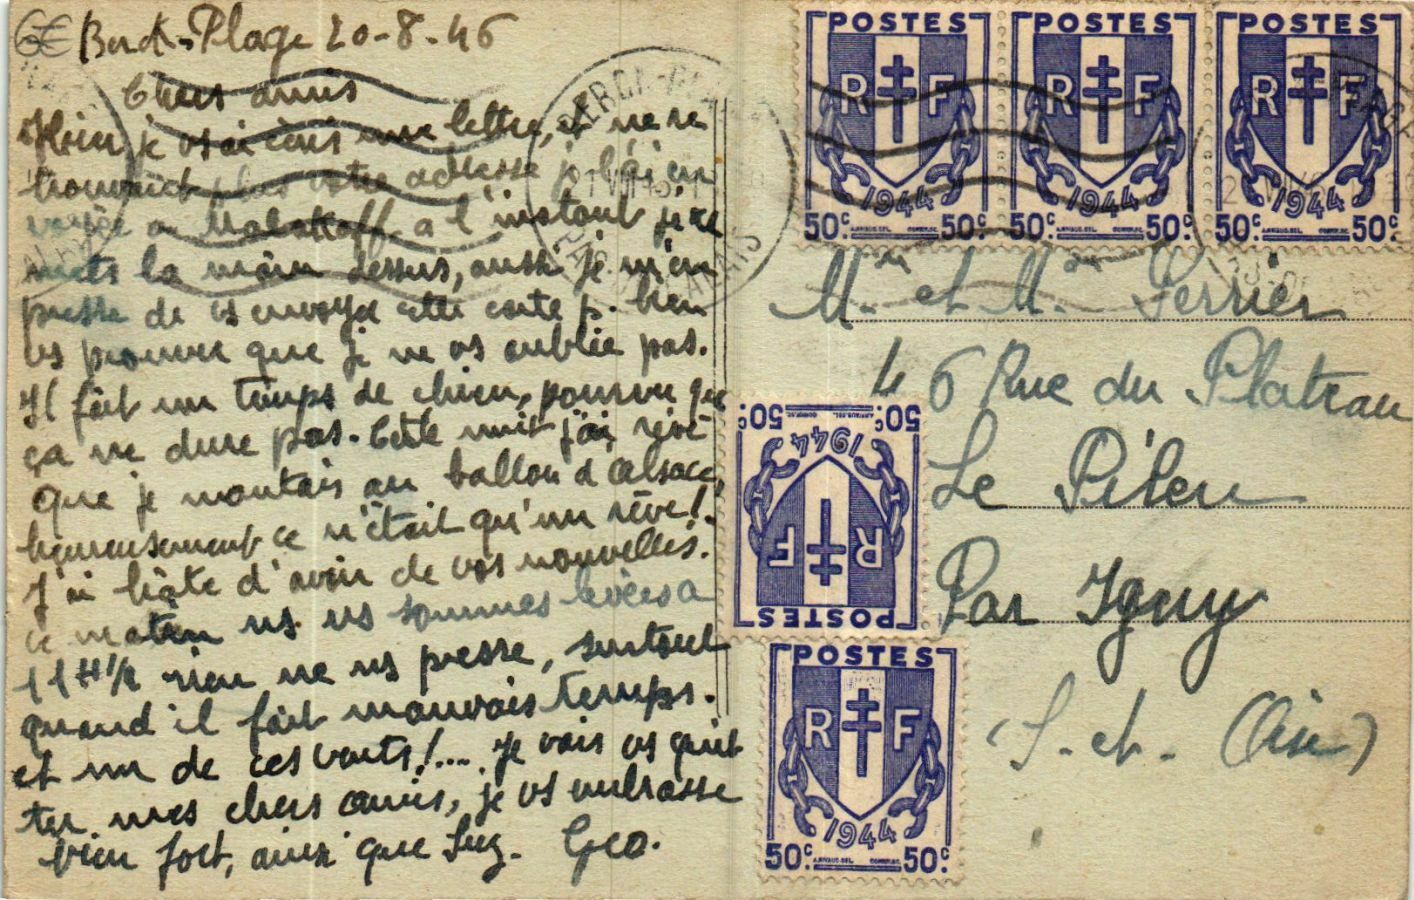 6€ Berck-Plage 20-8-46
Chers amis
Hier je vs ai écris une lettre, et ne re
trouvant plus votre adresse je l'ai en
voyée a Malakoff a l'instant je re
mets la main dessus, aussi je m'em
presse de vs envoyer cette carte p. bien
vs prouver que je ne vs oublie pas.
Il fait un temps de chien, pourvu que
ça ne dure pas. Cette nuit j'ai rêvé
que je montais au ballon d'alsace,
heureusement ce n'était qu'un rêve!
J'ai hâte d'avoir de vos nouvelles.
ce matin ns ns sommes levées a
11H½ rien ne ns presse, surtout
quand il fait mauvais temps.
et un de ces vents!.... Je vais vs quit
ter mes chers amis, je vs embrasse
bien fort, ainsi que Suz. Geo.
BERCK-PLAGE
PAS-DE-CALAIS
POSTES
RF
1944
50c. 50c.
POSTES
RF
1944
50c. 50c.
POSTES
RF
1944
50c. 50c.
Mr et Mme Perrier
46 Rue du Plateau
Le Pileu
Par Igny
(S. et. Oise)
POSTES
RF
1944
50c. 50c.
POSTES
RF
1944
50c. 50c.